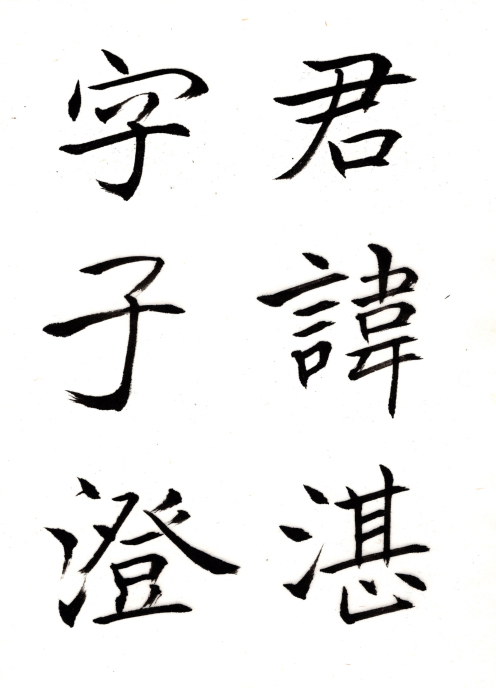 君諱湛
字子澄